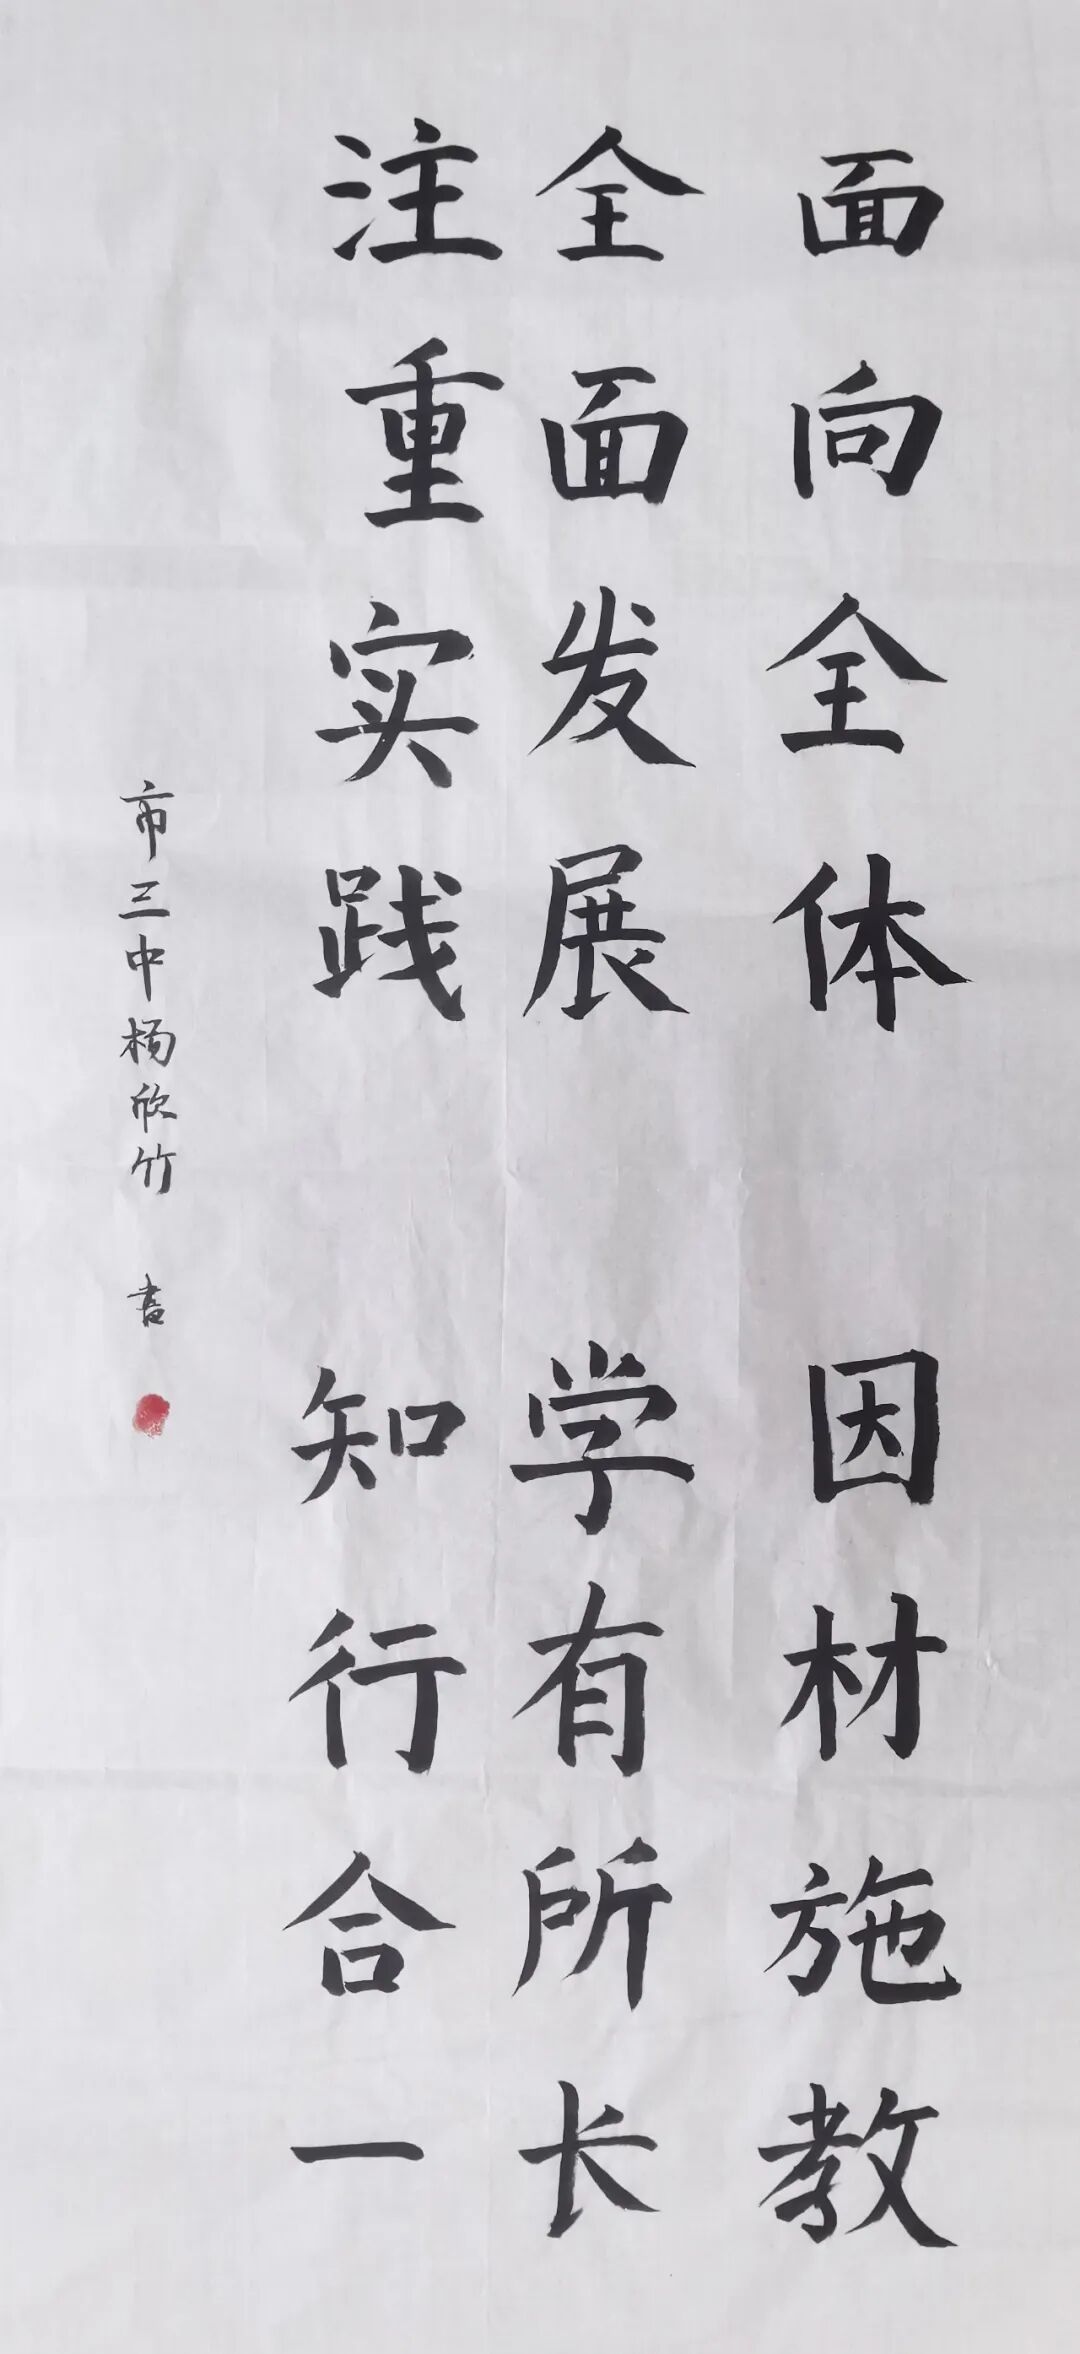 面向全体 因材施教
全面发展 学有所长
注重实践 知行合一
市三中杨欣竹 书